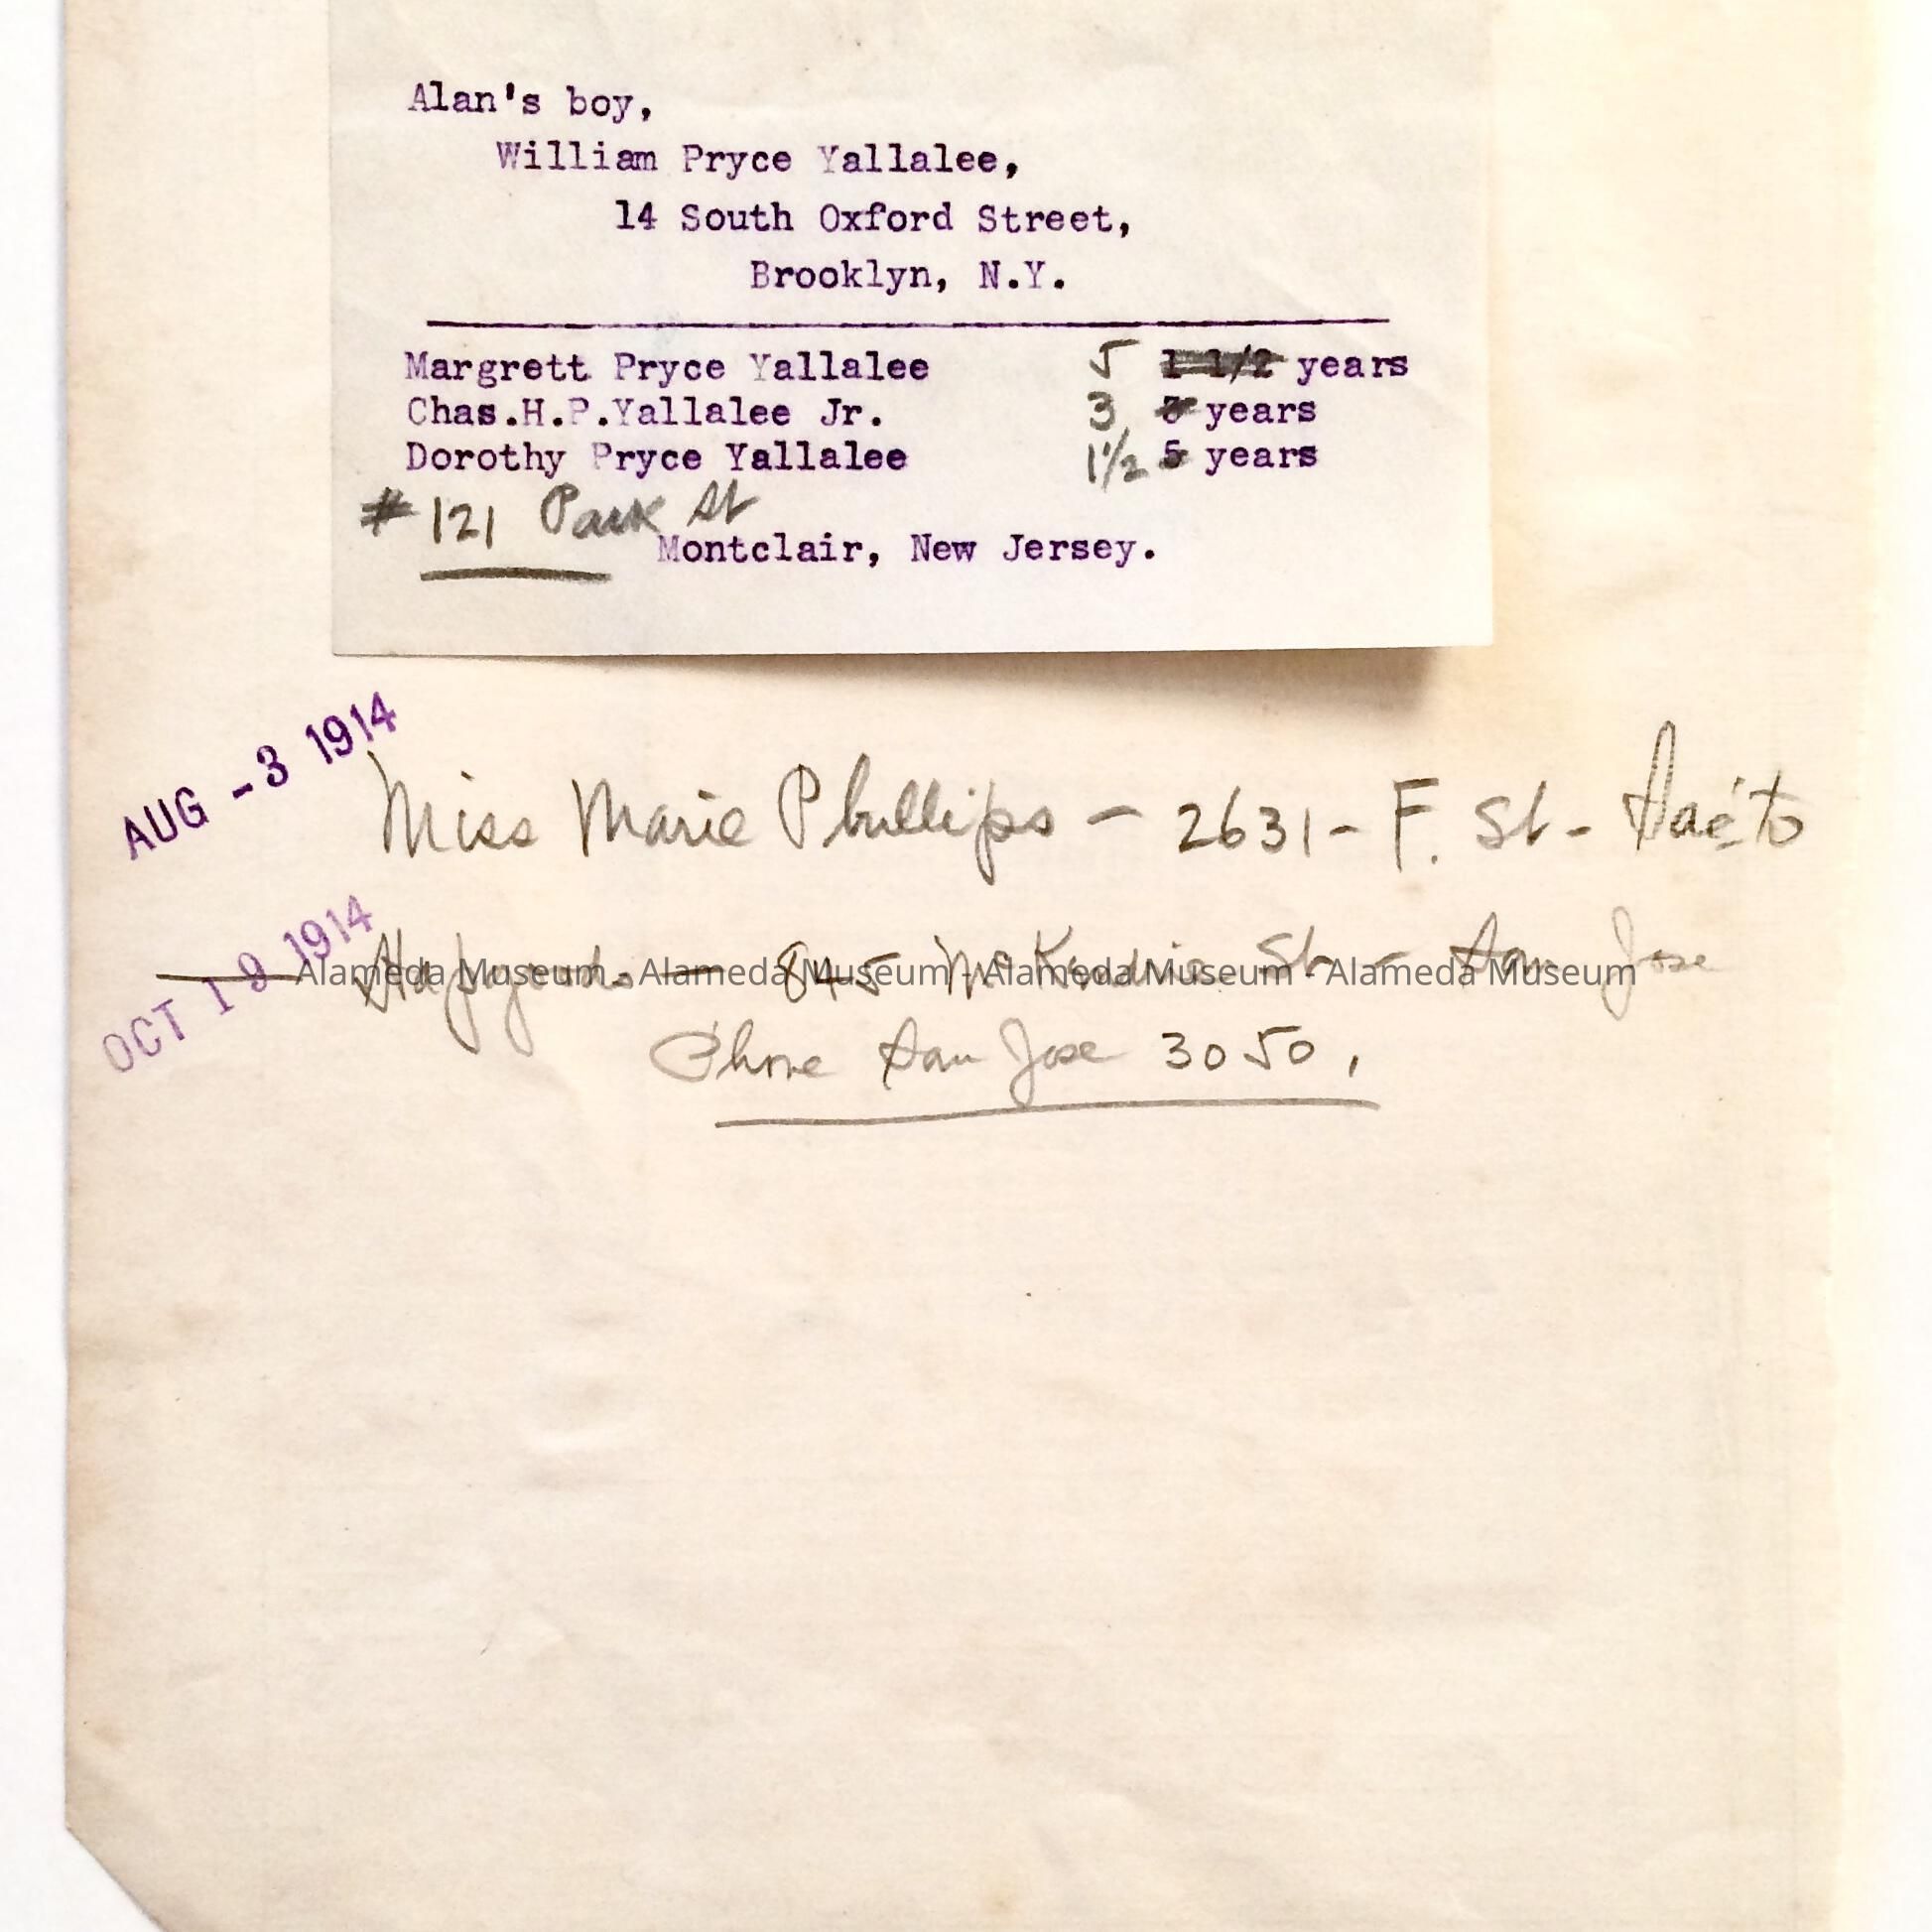 Alan's boy,
William Pryce Yallalee,
14 South Oxford Street,
Brooklyn, N.Y.
Margrett Pryce Yallalee 5 1 1/2 years
Chas.H.P.Yallalee Jr. 3 years
Dorothy Pryce Yallalee 1½ 5 years
#121 Park St
Montclair, New Jersey.
AUG -3 1914
Miss Marie Phillips - 2631 - F. St - Sac'to
OCT 19 1914
845 St - San Jose
Alameda Museum - Alameda Museum - Alameda Museum - Alameda Museum
Phone San Jose 3050.